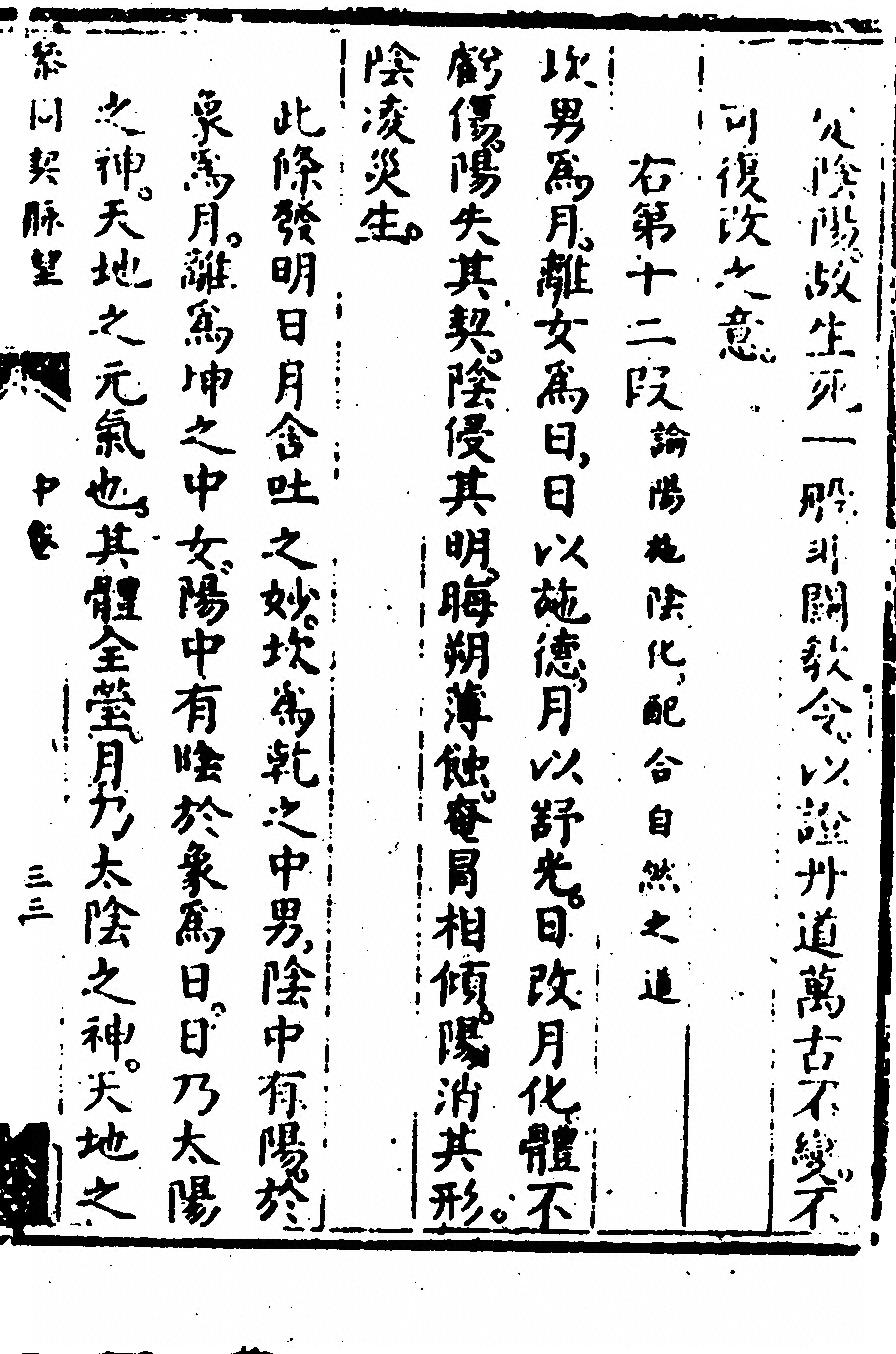 定陰陽。故生死一般。非關敎令。以證丹道萬古不變。不
可復改之意。
右第十二段論陽施陰化,配合自然之道
坎男爲月。離女爲日,日以施德。月以舒光。日改月化。體不
虧傷。陽失其契。陰侵其明。晦朔薄蝕。奄冒相傾。陽消其形。
陰凌災生。
此條發明日月含吐之妙。坎爲乾之中男,陰中有陽。於
象爲月。離爲坤之中女。陽中有陰於象爲日。日乃太陽
之神。天地之元氣也。其體全瑩。月乃太陰之神。天地之
參同契脉望
中卷
三三